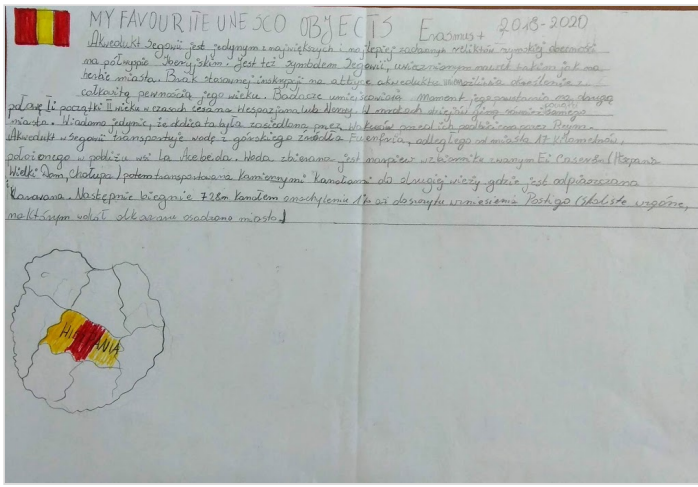 MY FAVOURITE UNESCO OBJECTS Erasmus+ 2018-2020
Akwedukt Segowii jest jedynym z największych i najlepiej reliktów rzymskiej obecności
na półwyspie Iberyjskim. Jest też symbolem Segowii, uwiecznionym nawet takim jak na
herbie miasta. Brak stosownej inskrypcji na attyce akweduktu określenie z
całkowitą pewnością jego wieku. Badacze umiejscowiono moment jego powstania na drugą
połowę I i początki II wieku w czasach cesarza Wespazjana lub Nerwy. W samego
miasta. Wiadomo jedynie, że okolica ta była zasiedlona przez przed ich podbiciem przez Rzym.
Akwedukt w Segowii transportuje wodę z górskiego źródła Fuenfría, odległego od miasta 17 kilometrów,
położonego w pobliżu wsi La Acebeda. Woda zbierana jest najpierw w zbiorniku zwanym El Caserón (Hiszpańs
Wielki Dom, Chałupa) potem transportowana kamiennymi kanałami do drugiej wieży gdzie jest odpiaszczana
Następnie biegnie 728m kanałem o nachyleniu 1% aż do wzniesienia Postigo (skaliste wzgórze,
na którym wokół alkazaru osadzono miasto)
HISZPANIA